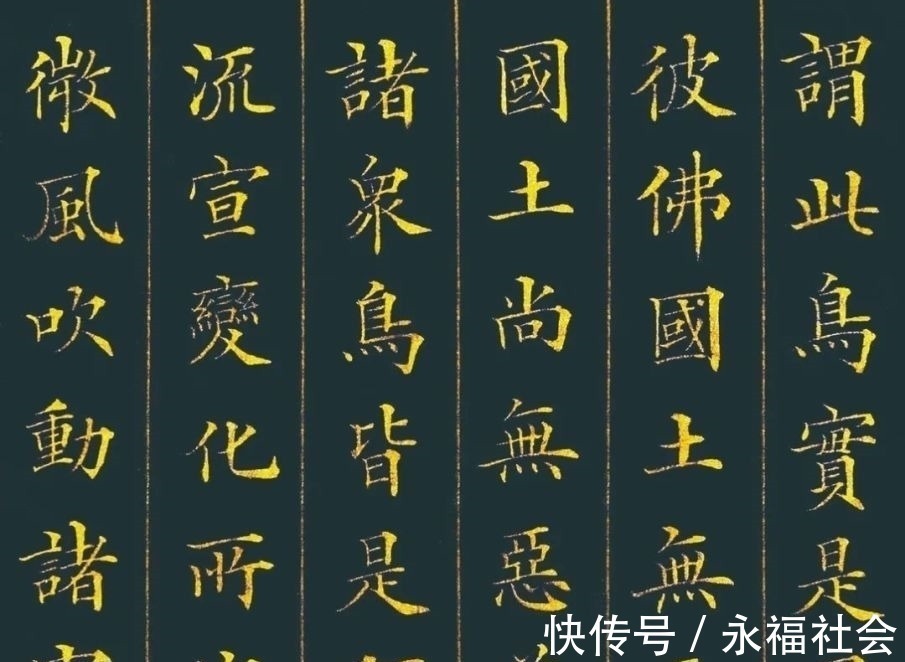 謂此鳥實是
彼佛國土無
國土尚無惡
諸衆鳥皆是
流宣變化所
微風吹動諸
快传号 / 永福社会